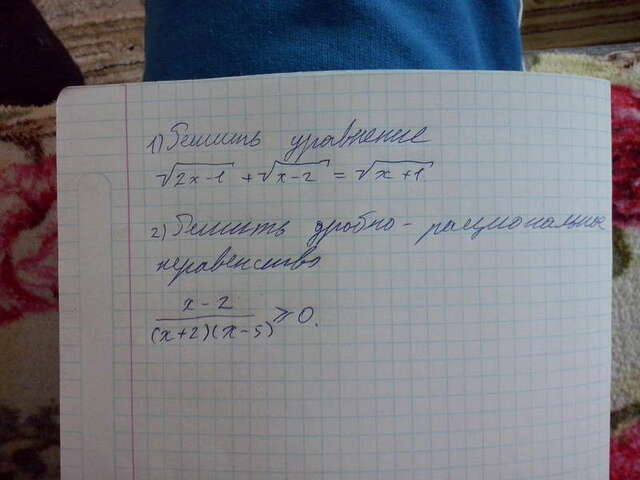 1) Решить уравнение
√2x-1 + √x-2 = √x+1.
2) Решить дробно-рациональное
неравенство
x-2
(x+2)(x-5) ≥ 0.